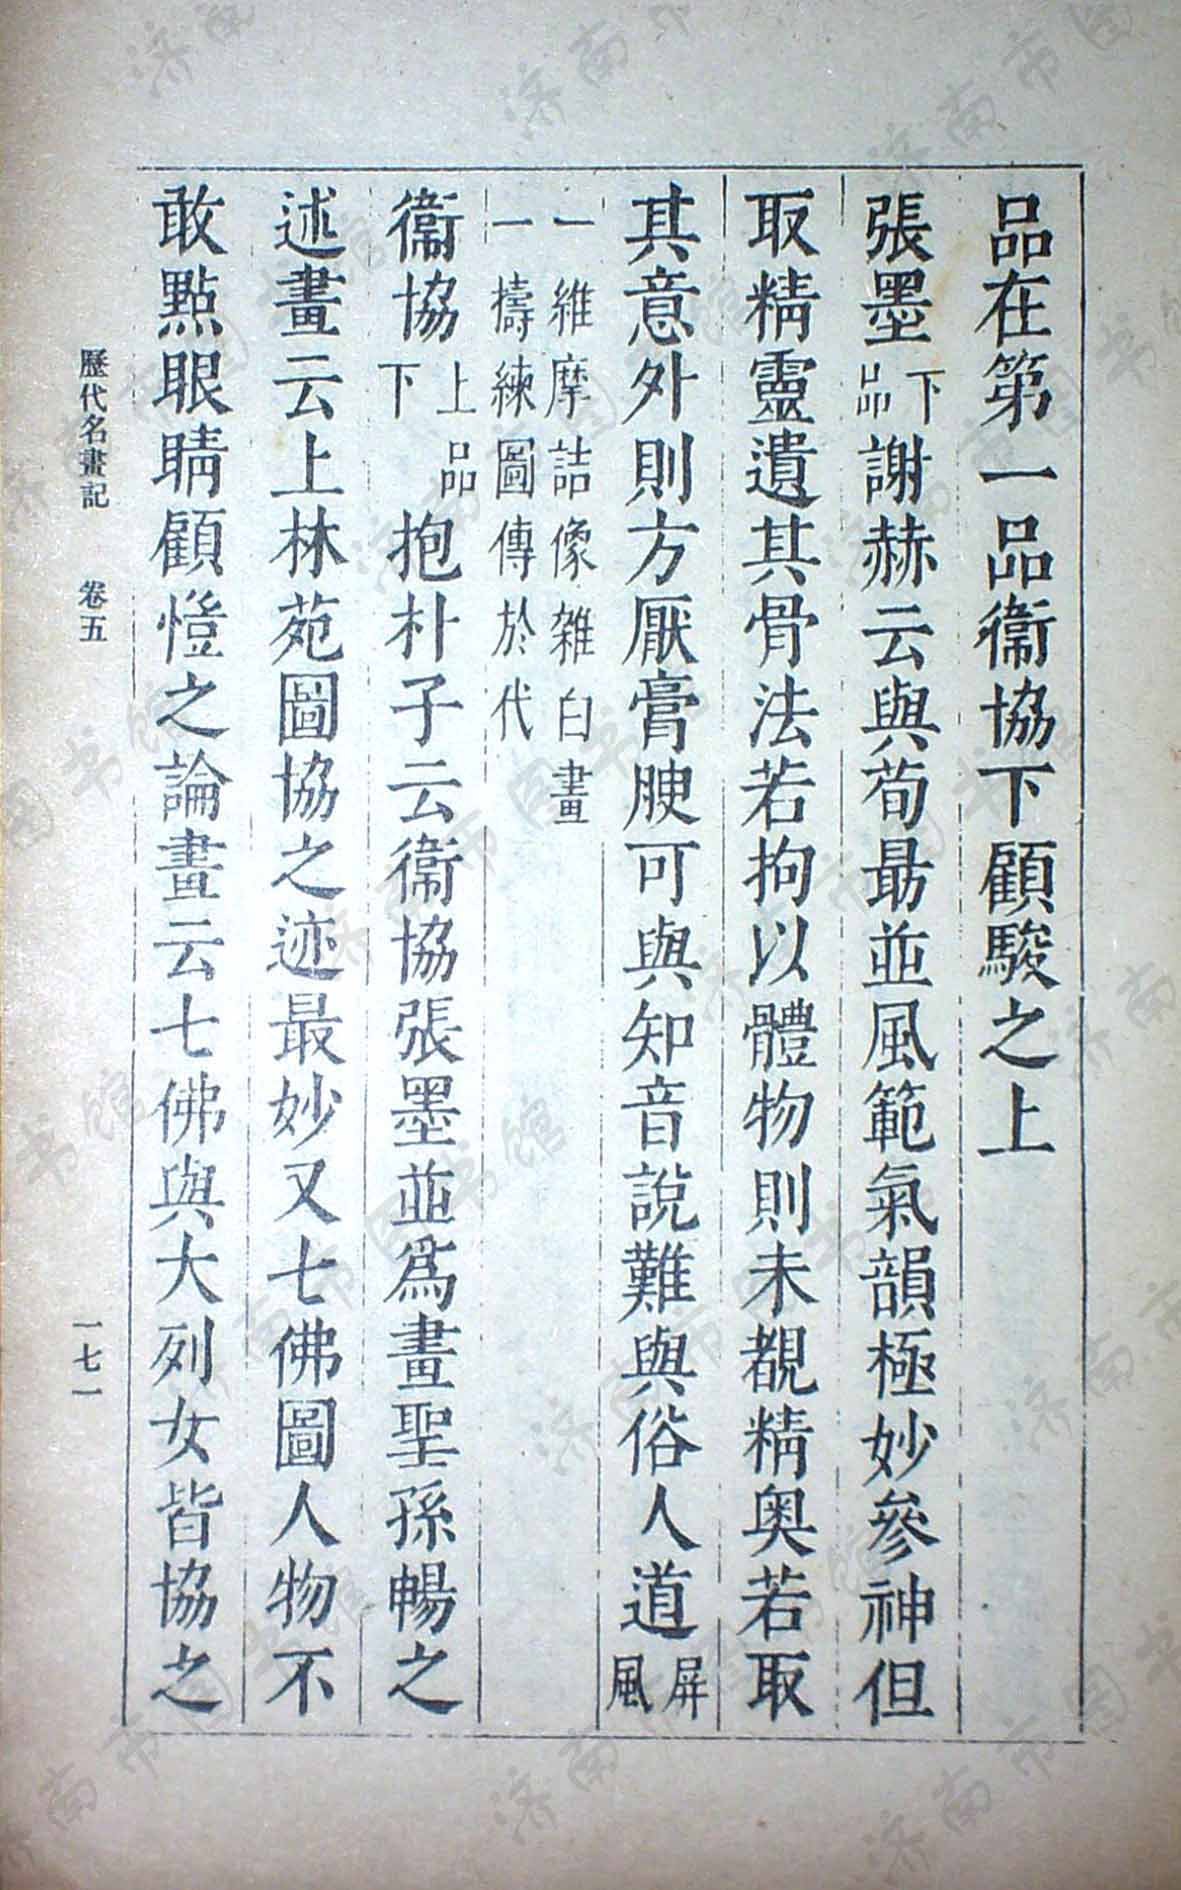 品在第一品衞協下顧駿之上
張墨下品謝赫云與荀勗並風範氣韻極妙參神但
取精靈遺其骨法若拘以體物則未覩精奥若取
其意外則方厭膏腴可與知音說難與俗人道屏風
一維摩詰像雜白畫
一擣練圖傳於代
衞協上品下抱朴子云衞協張墨並爲畫聖孫暢之
述畫云上林苑圖協之迹最妙又七佛圖人物不
敢點眼睛顧愷之論畫云七佛與大列女皆協之
歷代名畫記 卷五 一七一
济南市图书馆